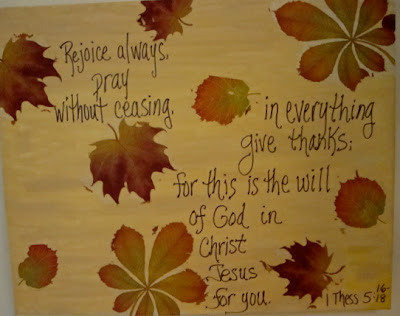 Rejoice always,
pray
without ceasing,
in everything
give thanks;
for this is the will
of God in
Christ
Jesus
for you.
1 Thess 5:16-18